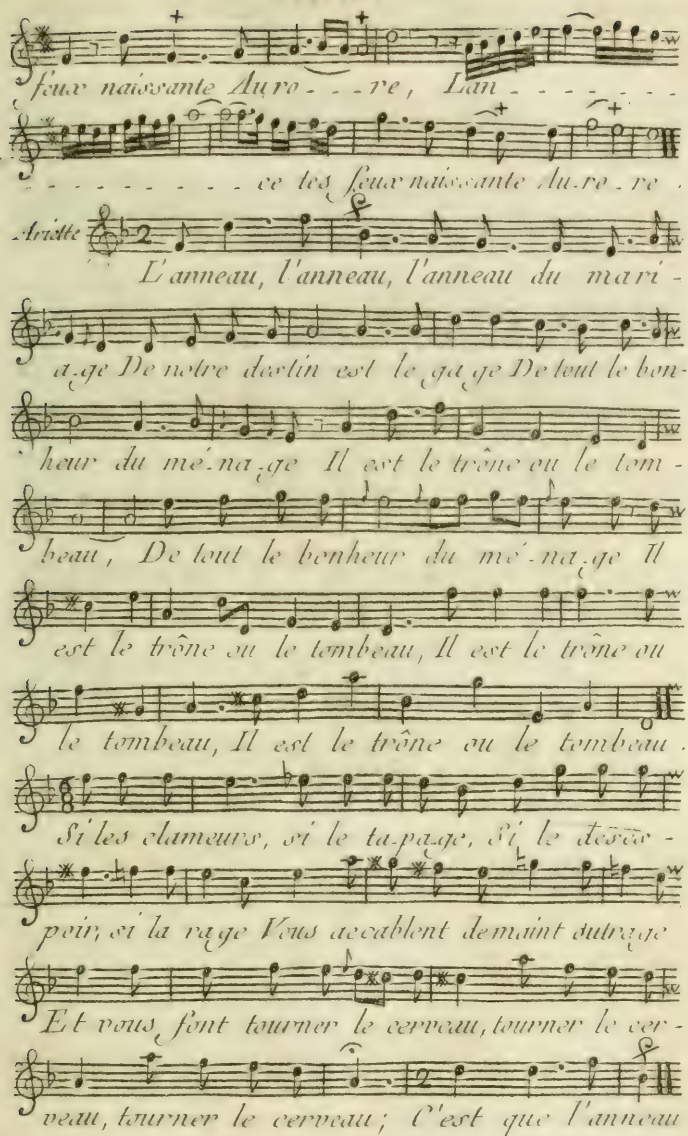 feux naissante Auro - - - re, Lan - - - - - - - -
- - - - - - - - - ce tes feux naissante Au-ro-re.
Ariette
L'anneau, l'anneau, l'anneau du mari-
a-ge De notre destin est le ga-ge De tout le bon-
heur du mé-na-ge Il est le trône ou le tom-
beau, De tout le bonheur du mé-na-ge Il
est le trône ou le tombeau, Il est le trône ou
le tombeau, Il est le trône ou le tombeau.
Si les clameurs, si le ta-pa-ge, Si le déses-
poir, si la rage Vous accablent demaint outrage
Et vous font tourner le cerveau, tourner le cer-
veau, tourner le cerveau; C'est que l'anneau